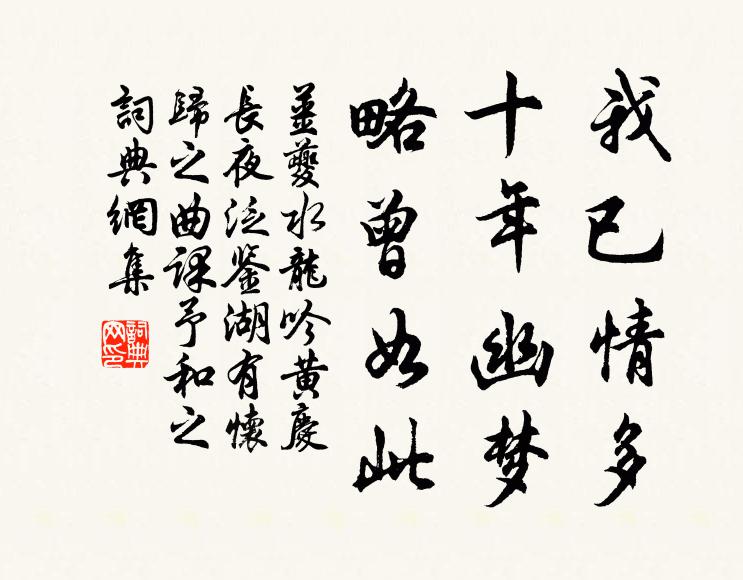 我已情多
十年幽梦
略曾如此
姜夔水龍吟黄慶
長夜泛鉴湖有懷
歸之曲課予和之
詞典網集
詞典网印